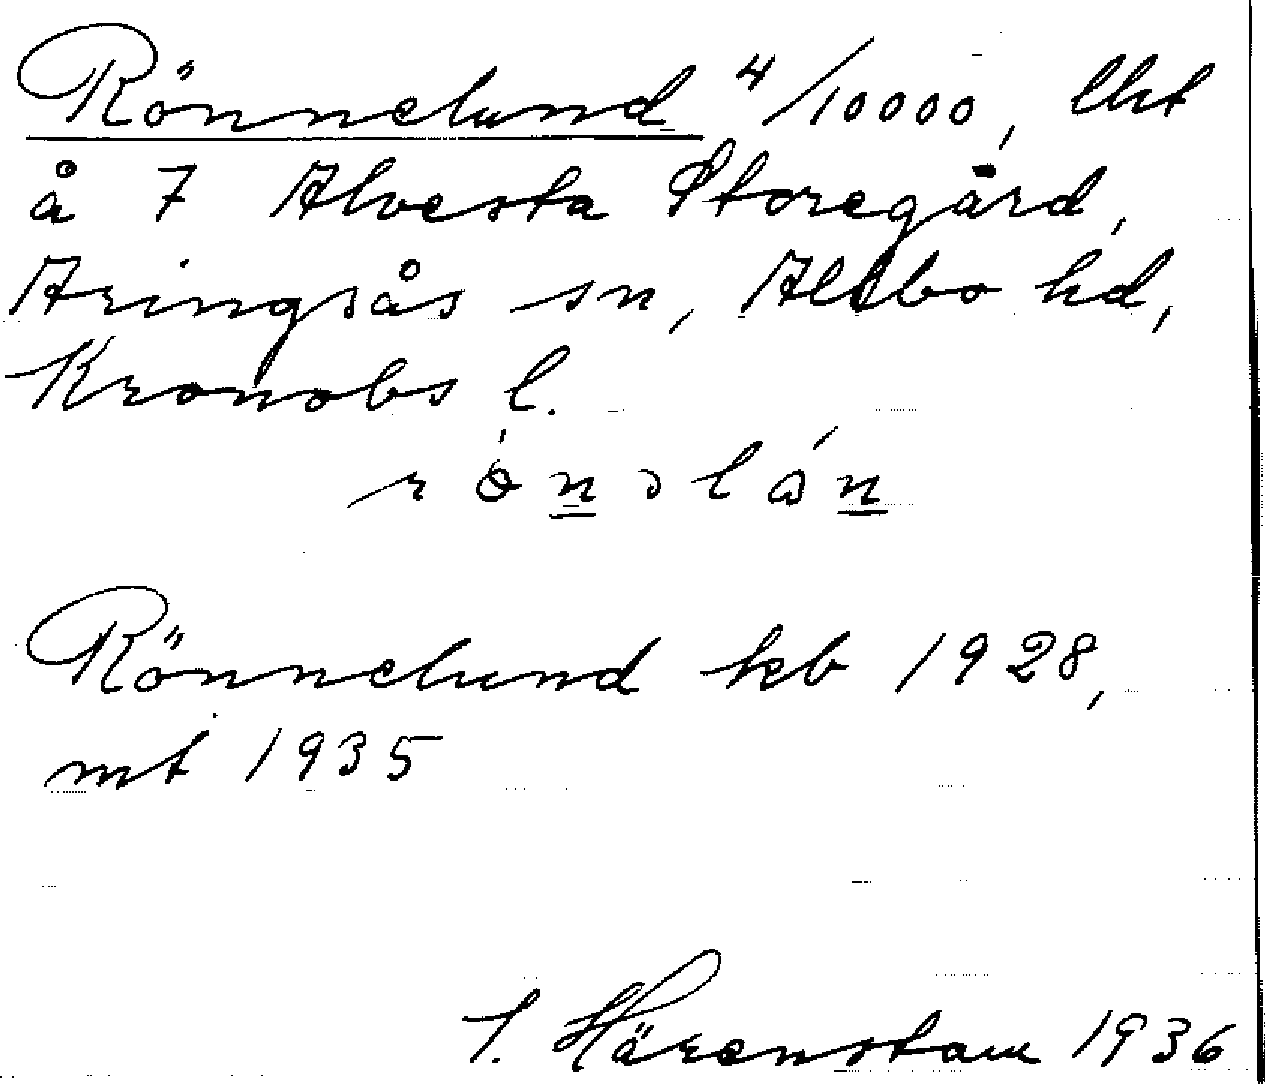 Rönnelund 4/10000, lht
å 7 Alvesta Storegård,
Aringsås sn, Allbo hd,
Kronobs l.
rönəlán
Rönnelund kb 1928,
mt 1935
I. Härenstam 1936